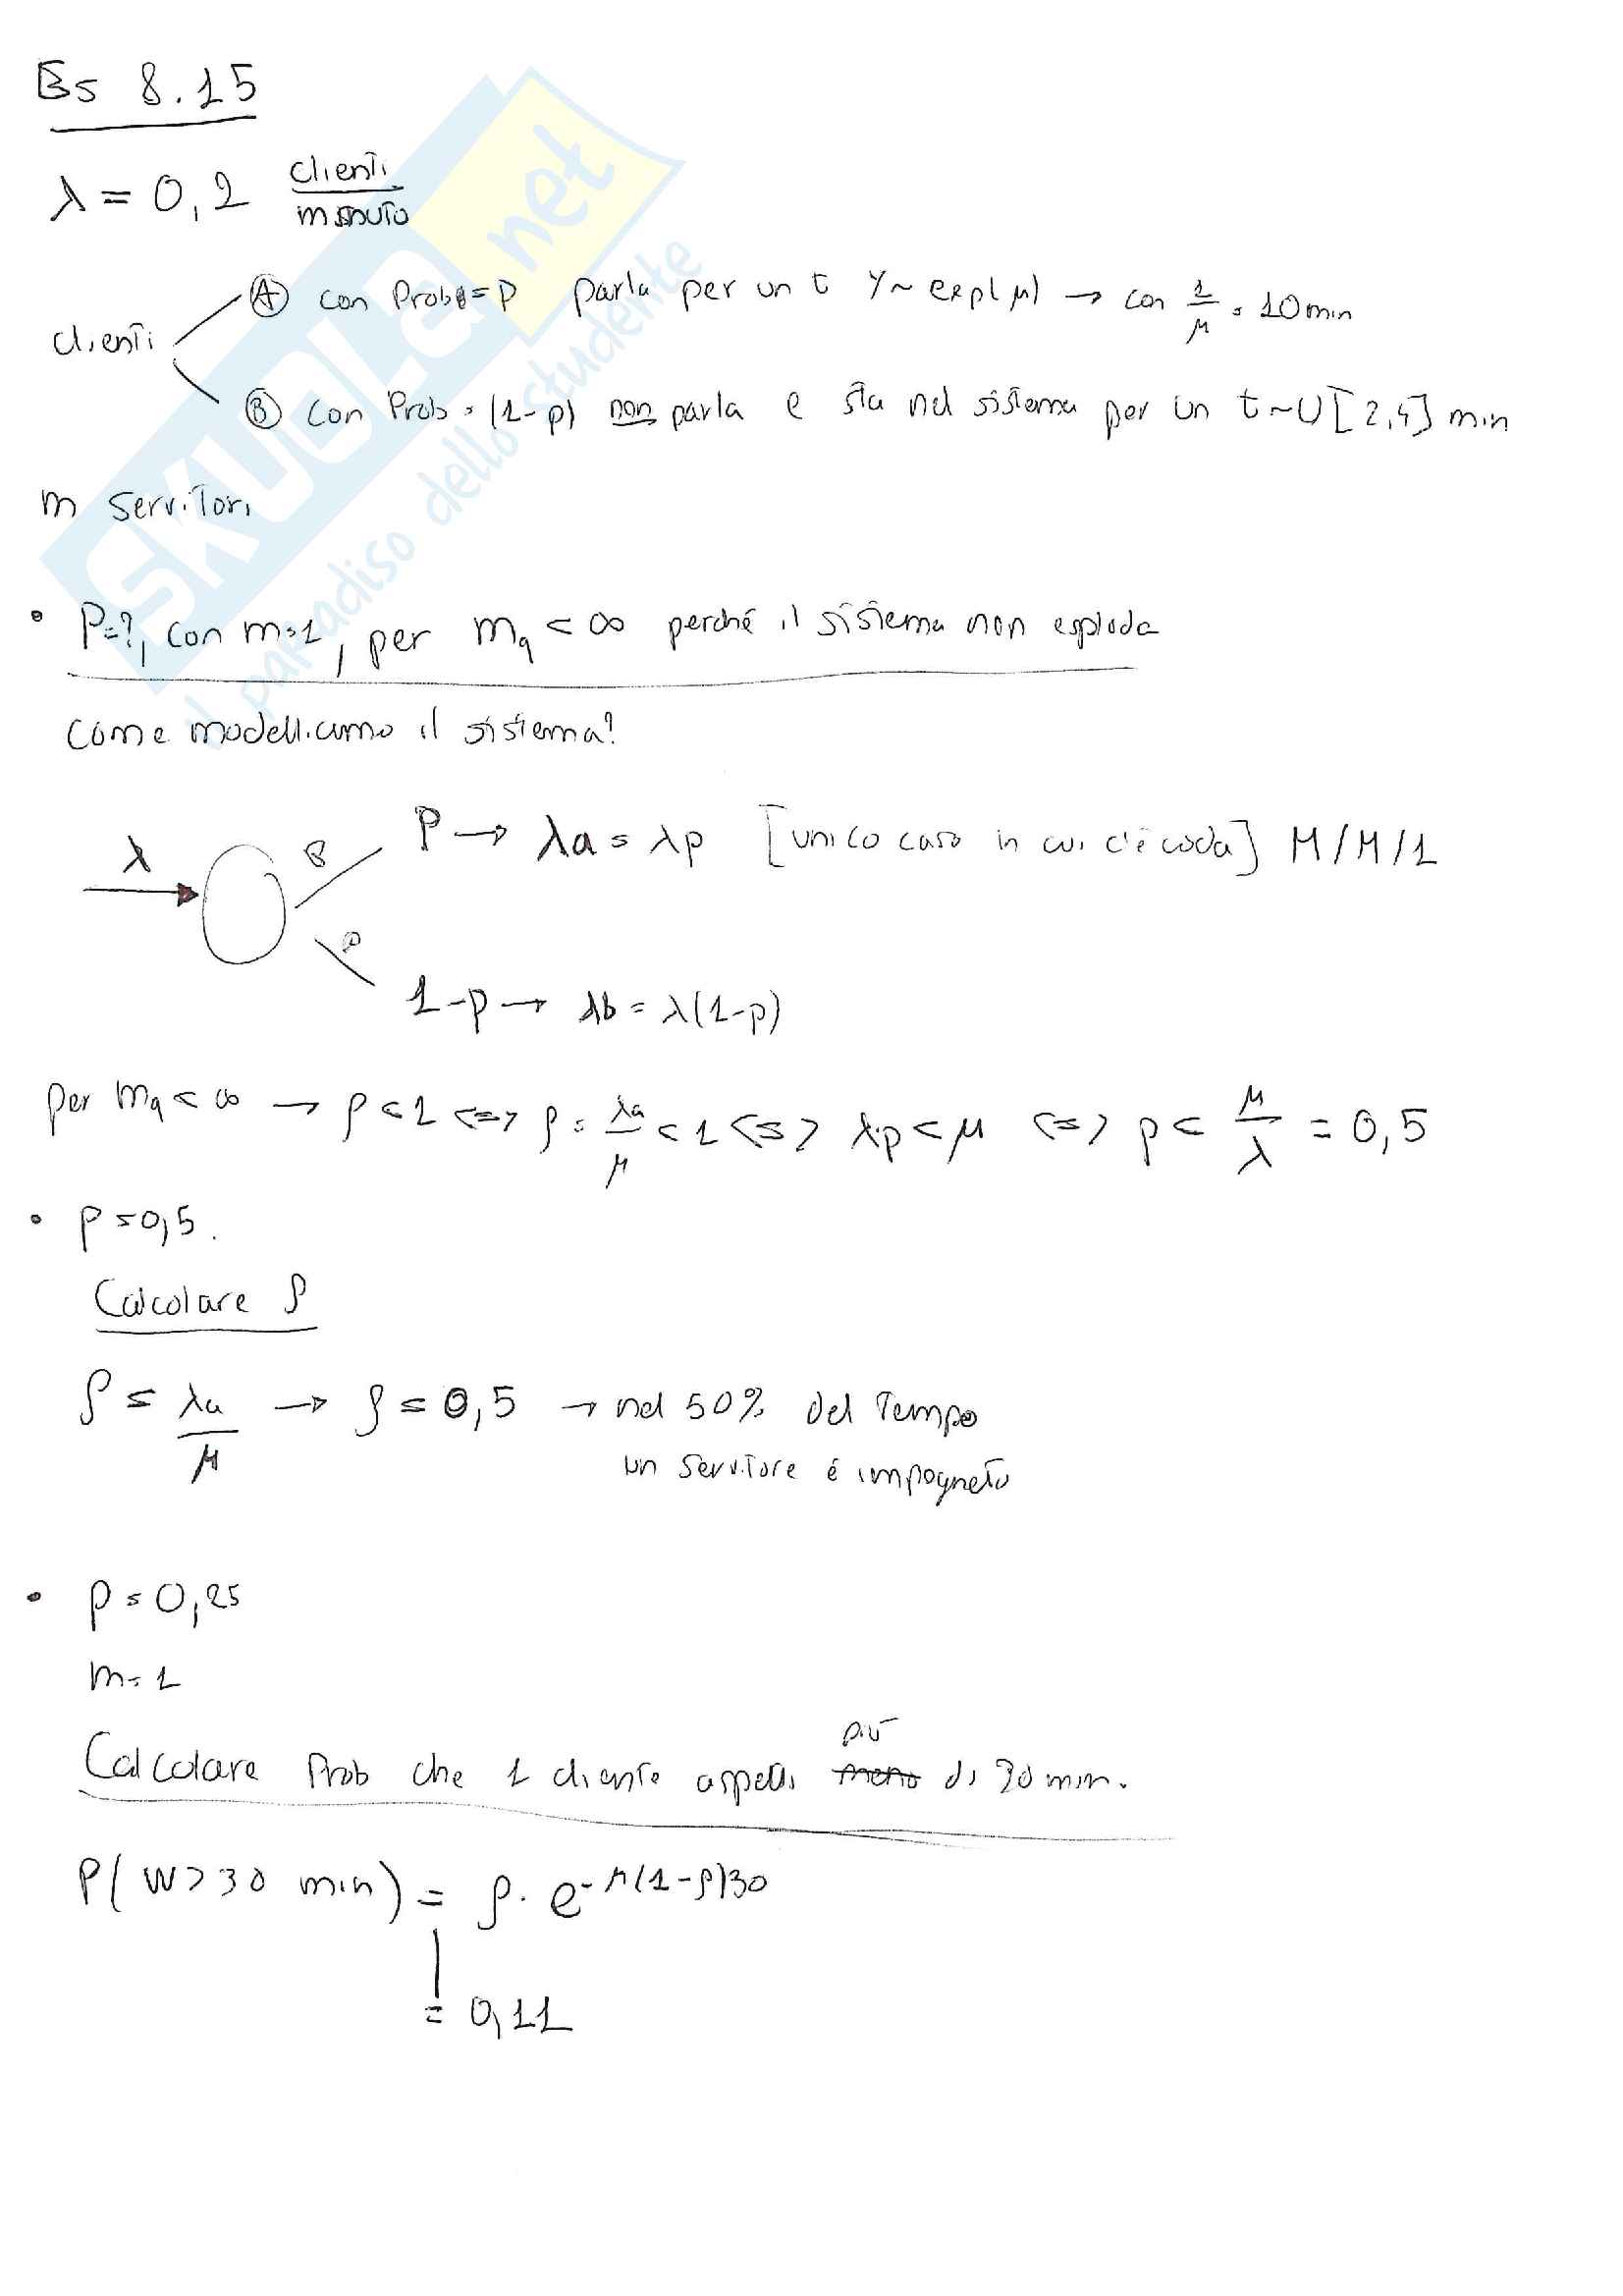 Es 8.15
λ = 0,2 clienti/minuto
clienti
Ⓐ con Prob = p parla per un t Y~exp(μ) → con 1/μ = 10 min
Ⓑ con Prob = (1-p) non parla e sta nel sistema per un t~U[2,4] min
m servitori
• P=?, con m=1, per mq < ∞ perché il sistema non esploda
come modelliamo il sistema?
λ
P → λa = λp [unico caso in cui c'è coda] M/M/1
1-p → λb = λ(1-p)
per mq < ∞ → ρ < 1 <=> ρ = λa/μ < 1 <=> λ·p < μ <=> p < μ/λ = 0,5
• p = 0,5.
Calcolare ρ
ρ = λa/μ → ρ = 0,5 → nel 50% del tempo
un servitore é impegnato
• p = 0,25
m = 1
più
Calcolare Prob che 1 cliente aspetti meno di 30 min.
P( W > 30 min ) = ρ · e^-μ(1-ρ)30
= 0,11
SKUOLA.net
il paradiso dello studente